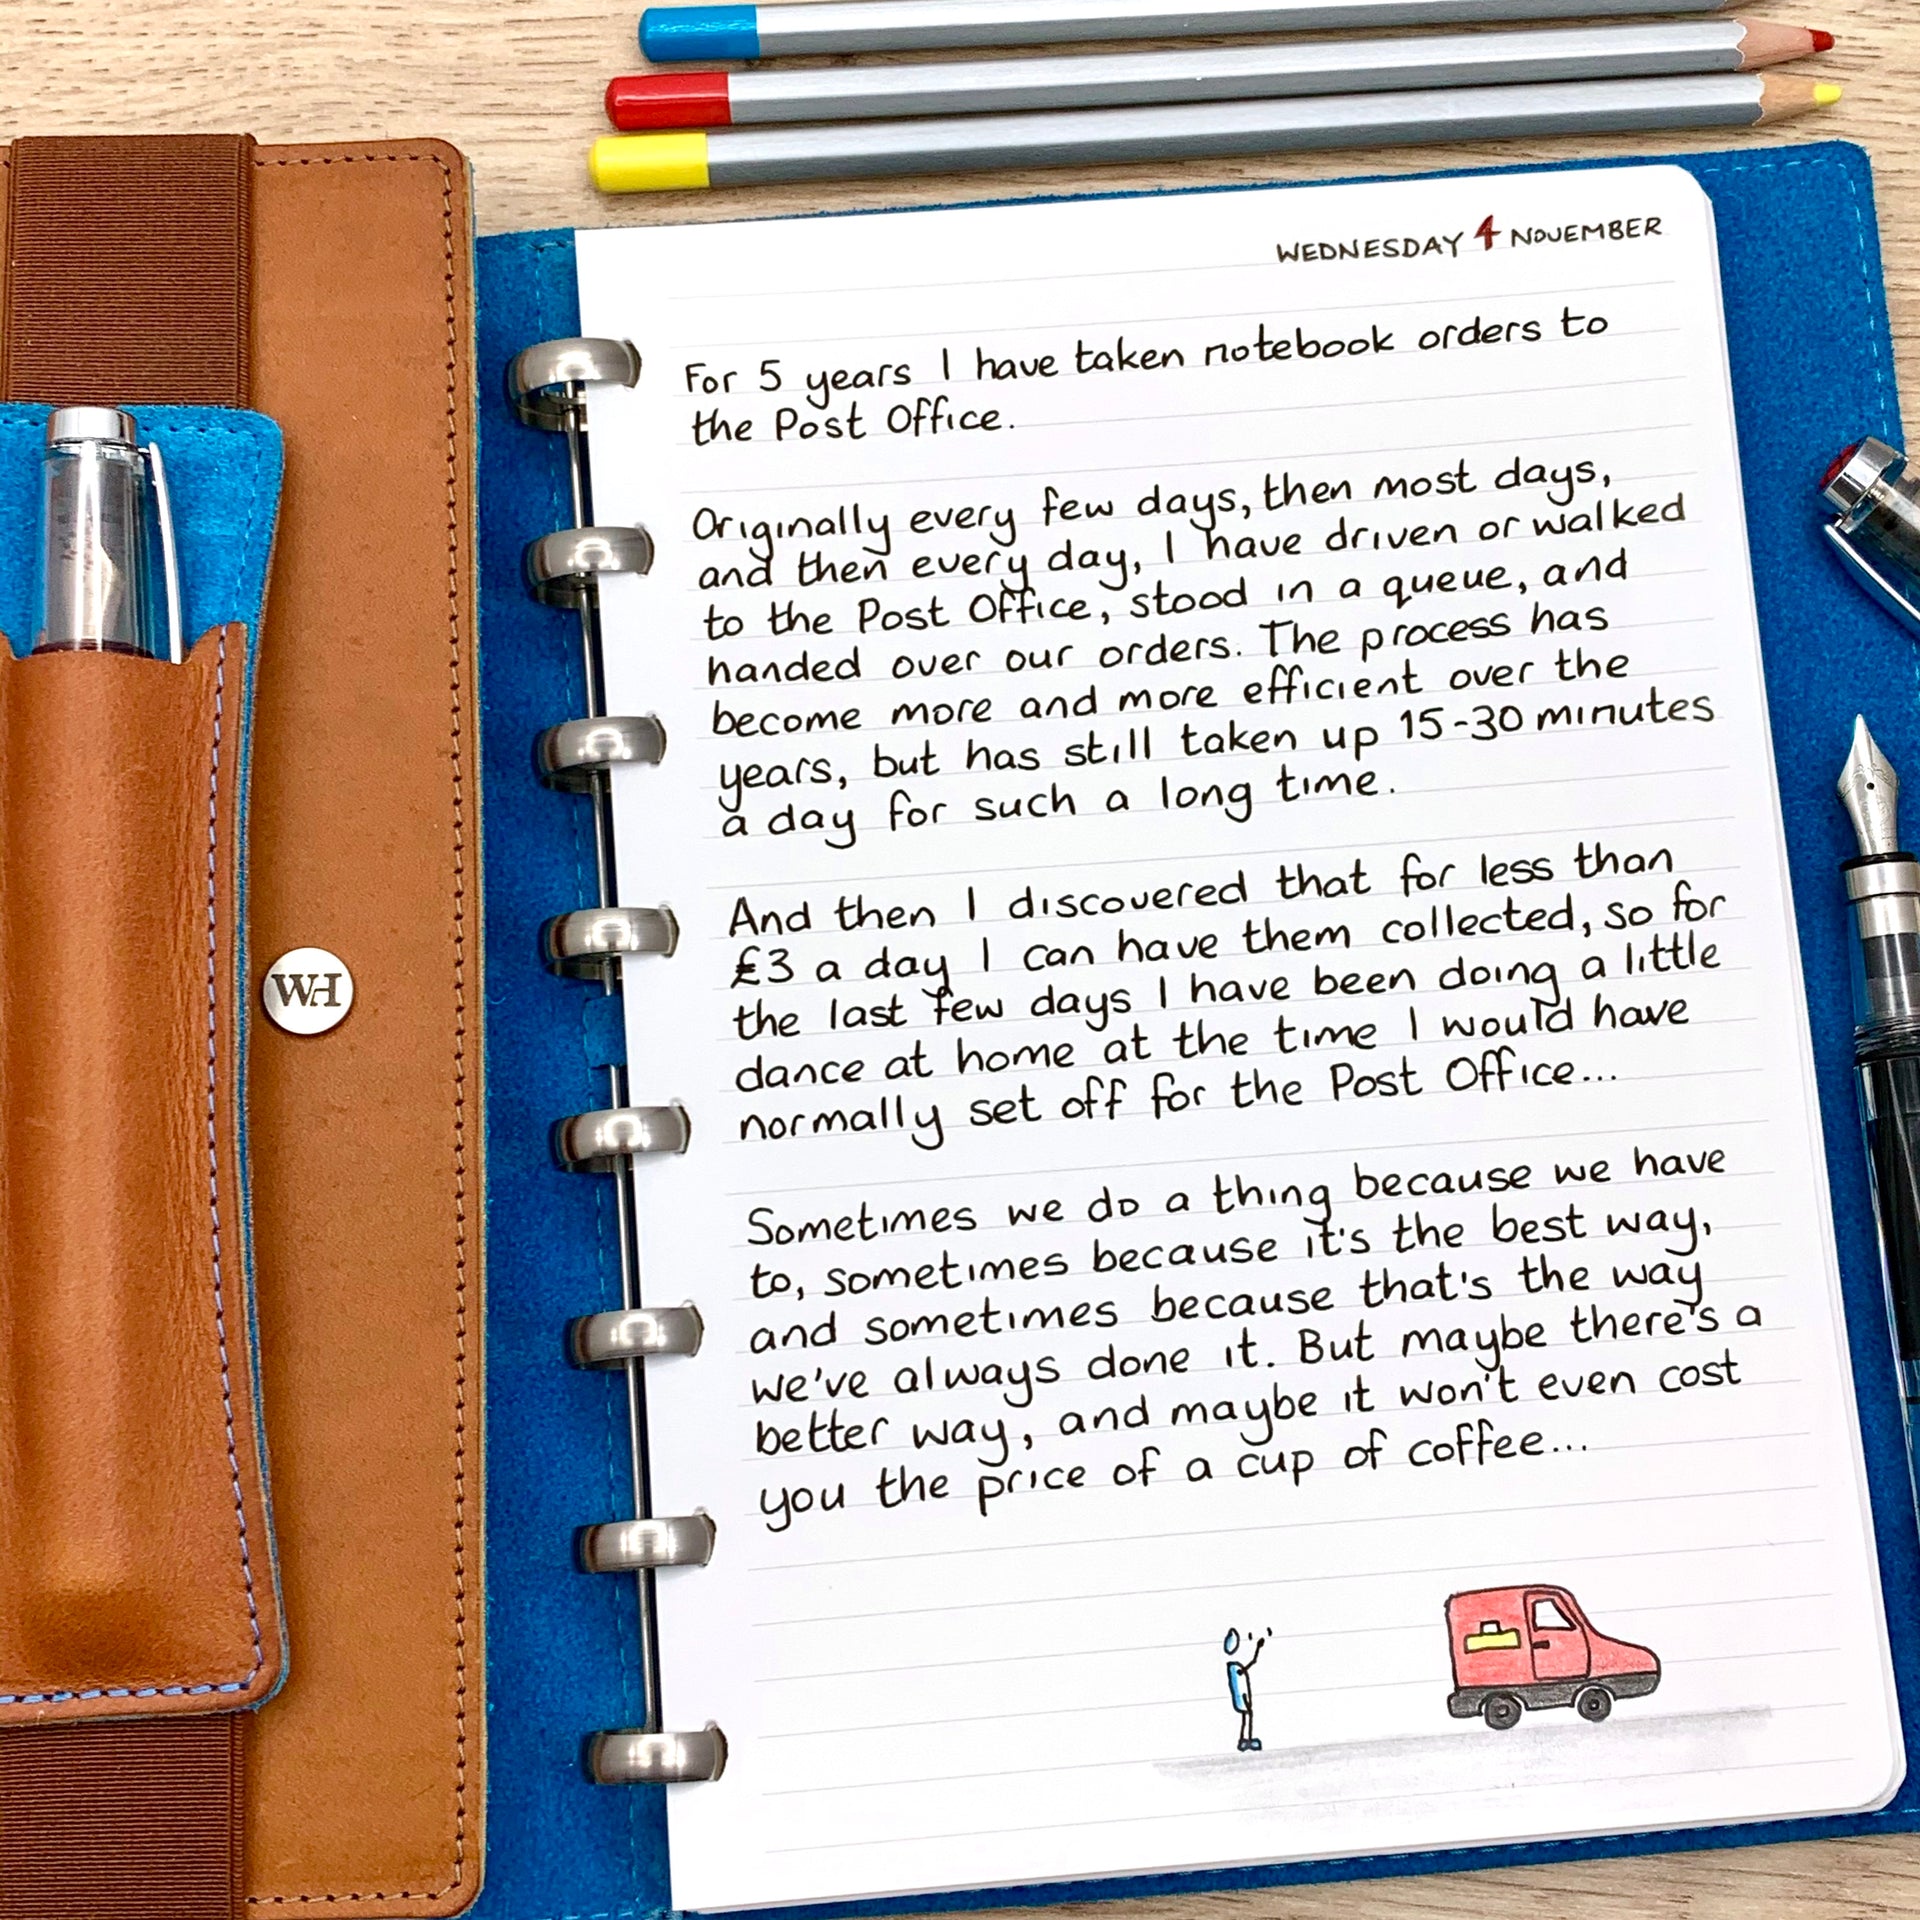 WEDNESDAY 4 NOVEMBER
For 5 years I have taken notebook orders to
the Post Office.
Originally every few days, then most days,
and then every day, I have driven or walked
to the Post Office, stood in a queue, and
handed over our orders. The process has
become more and more efficient over the
years, but has still taken up 15-30 minutes
a day for such a long time.
And then I discovered that for less than
£3 a day I can have them collected, so for
the last few days I have been doing a little
dance at home at the time I would have
normally set off for the Post Office...
Sometimes we do a thing because we have
to, sometimes because it's the best way,
and sometimes because that's the way
we've always done it. But maybe there's a
better way, and maybe it won't even cost
you the price of a cup of coffee...
WH